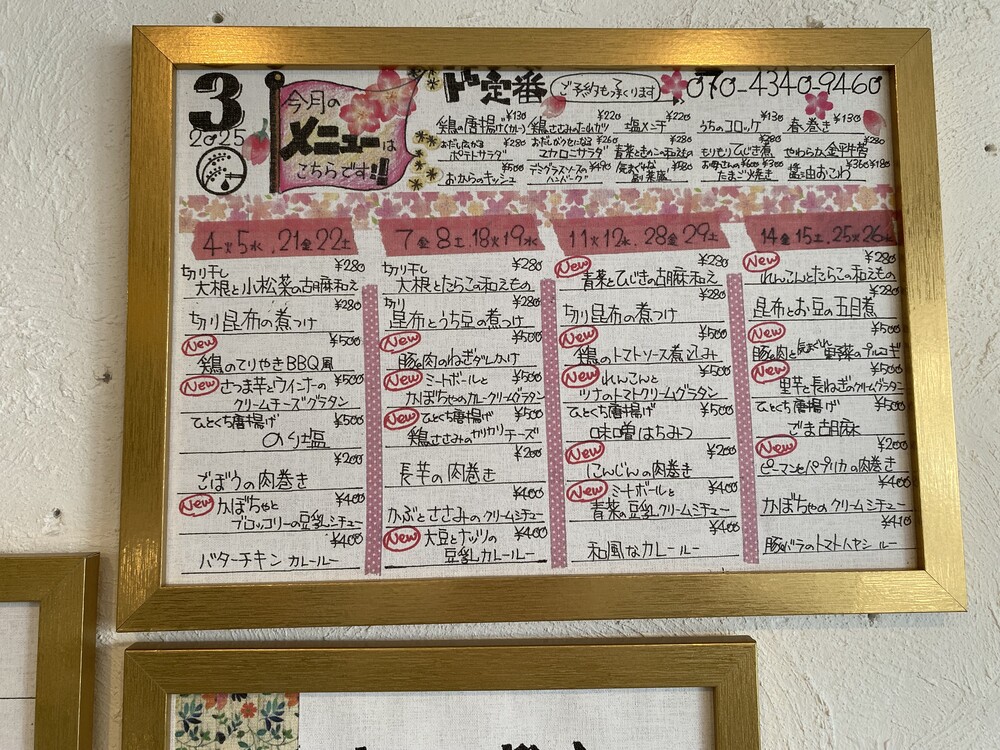 3
2025
今月の
メニューは
こちらです!!
ド定番
ご予約もつくります
070-4340-9460
鶏の唐揚げ ¥130
鶏ささみのたれカツ ¥220
塩メンチ ¥220
うちのコロッケ ¥130
春巻き ¥130
ポテトサラダ ¥280
マカロニサラダ ¥260
青菜ときのこの和えもの ¥280
もりもりひじき煮 ¥280
やわらか金平牛蒡 ¥280
おからのキッシュ ¥500
デミグラスソースのハンバーグ ¥490
気まぐれな副菜盛 ¥580
お母さんのたまご焼き ¥600 ¥300
醤油おこわ ¥360 ¥180
4火5水.21金22土
切り干し ¥280
大根と小松菜の胡麻和え
¥280
切り昆布の煮つけ
New ¥500
鶏のてりやきBBQ風
New さつま芋とウイナーの ¥500
クリームチーズグラタン
ひとくち唐揚げ ¥500
のり塩
¥200
ごぼうの肉巻き
New かぼちゃと ¥400
ブロッコリーの豆乳シチュー
¥400
バターチキン カレールー
7金8土.18火19水
切り干し ¥280
大根とたらこの和えもの
切り ¥280
昆布とうち豆の煮つけ
New ¥500
豚肉のねぎダレかけ
New ミートボールと ¥500
かぼちゃのカレークリームグラタン
New ひとくち唐揚げ ¥500
鶏ささみのカリカリチーズ
¥200
長芋の肉巻き
¥400
かぶとささみのクリームシチュー
New 大豆とナッツの ¥400
豆乳カレールー
11火12水.28金29土
New ¥280
青菜とひじきの胡麻和え
¥280
切り昆布の煮つけ
New ¥500
鶏のトマトソース煮込み
New れんこんと ¥500
ツナのトマトクリームグラタン
ひとくち唐揚げ ¥500
味噌はちみつ
New ¥200
にんじんの肉巻き
New ミートボールと ¥400
青菜の豆乳クリームシチュー
¥400
和風なカレールー
14金15土.25火26水
New ¥280
れんこんとたらこの和えもの
¥280
昆布とお豆の五目煮
New ¥500
豚肉と気まぐれ野菜のプルコギ
New ¥500
里芋と長ねぎのクリームグラタン
ひとくち唐揚げ ¥500
ごま胡麻
New ¥200
ピーマンとパプリカの肉巻き
¥400
かぼちゃのクリームシチュー
¥410
豚バラのトマトハヤシルー